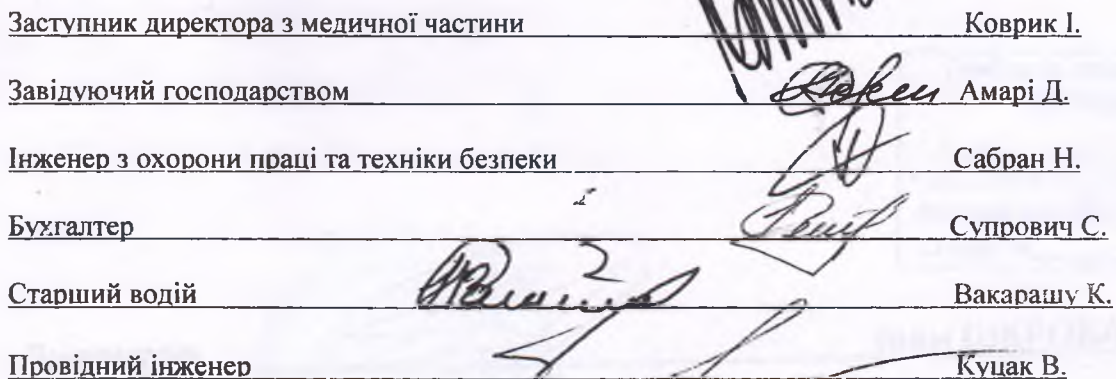 Заступник директора з медичної частини Коврик І.
Завідуючий господарством Амарі Д.
Інженер з охорони праці та техніки безпеки Сабран Н.
Бухгалтер Супрович С.
Старший водій Вакарашу К.
Провідний інженер Куцак В.